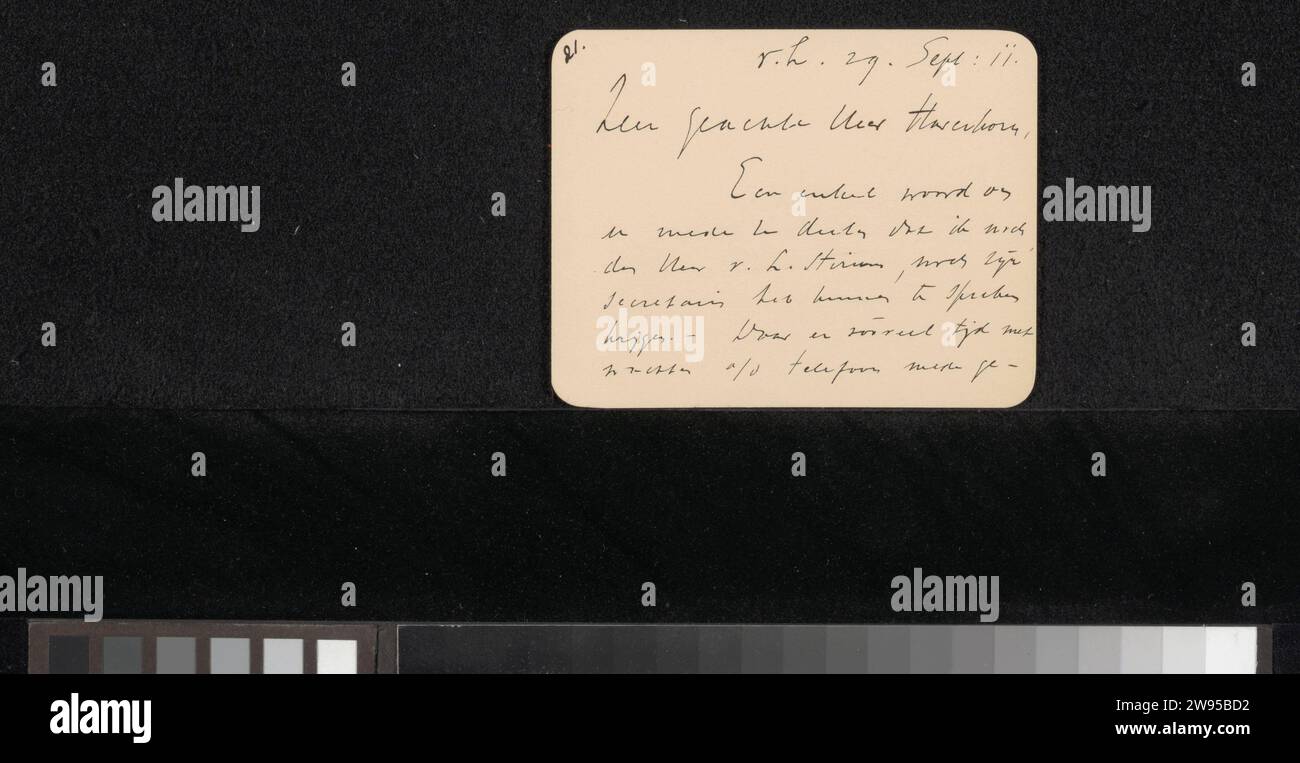 21.
v.L. 29. Sept: 11.
Zeer geachte Heer Haverkorn,
Een enkel woord om
u mede te deelen dat ik noch
den Heer v. L. Stirum, noch zijn
secretaris heb kunnen te spreken
krijgen. - Daar er zooveel tijd met
wachten a/d telefoon mede ge-
alamy
Image ID: 2W95BD2
www.alamy.com